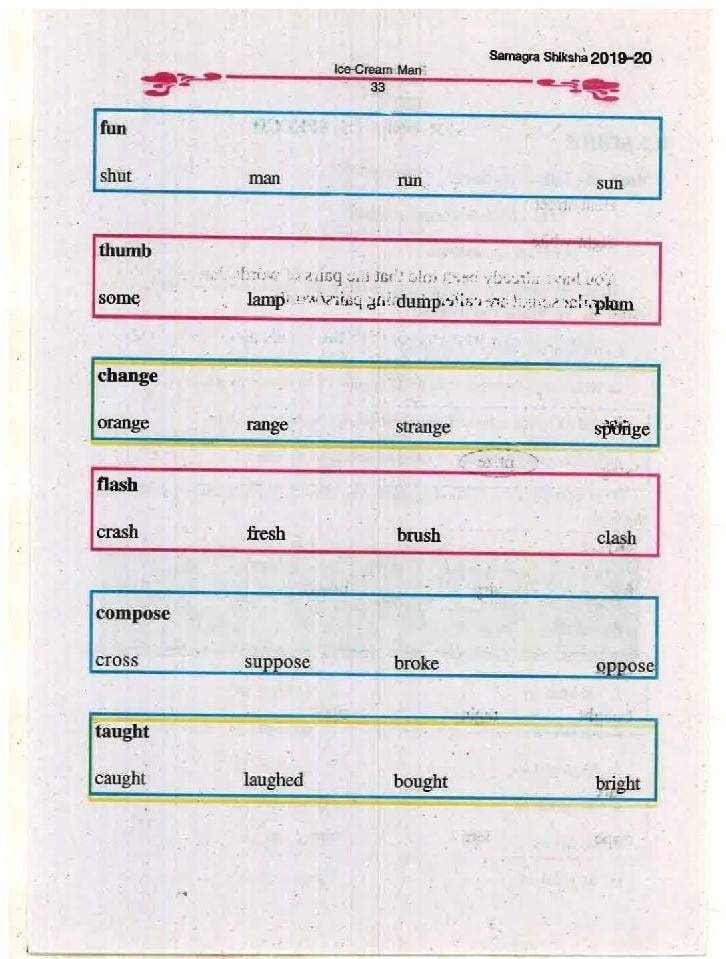 Samagra Shiksha 2019-20
Ice-Cream Man
33
fun
shut man run sun
thumb
some lamp dump plum
change
orange range strange sponge
flash
crash fresh brush clash
compose
cross suppose broke oppose
taught
caught laughed bought bright